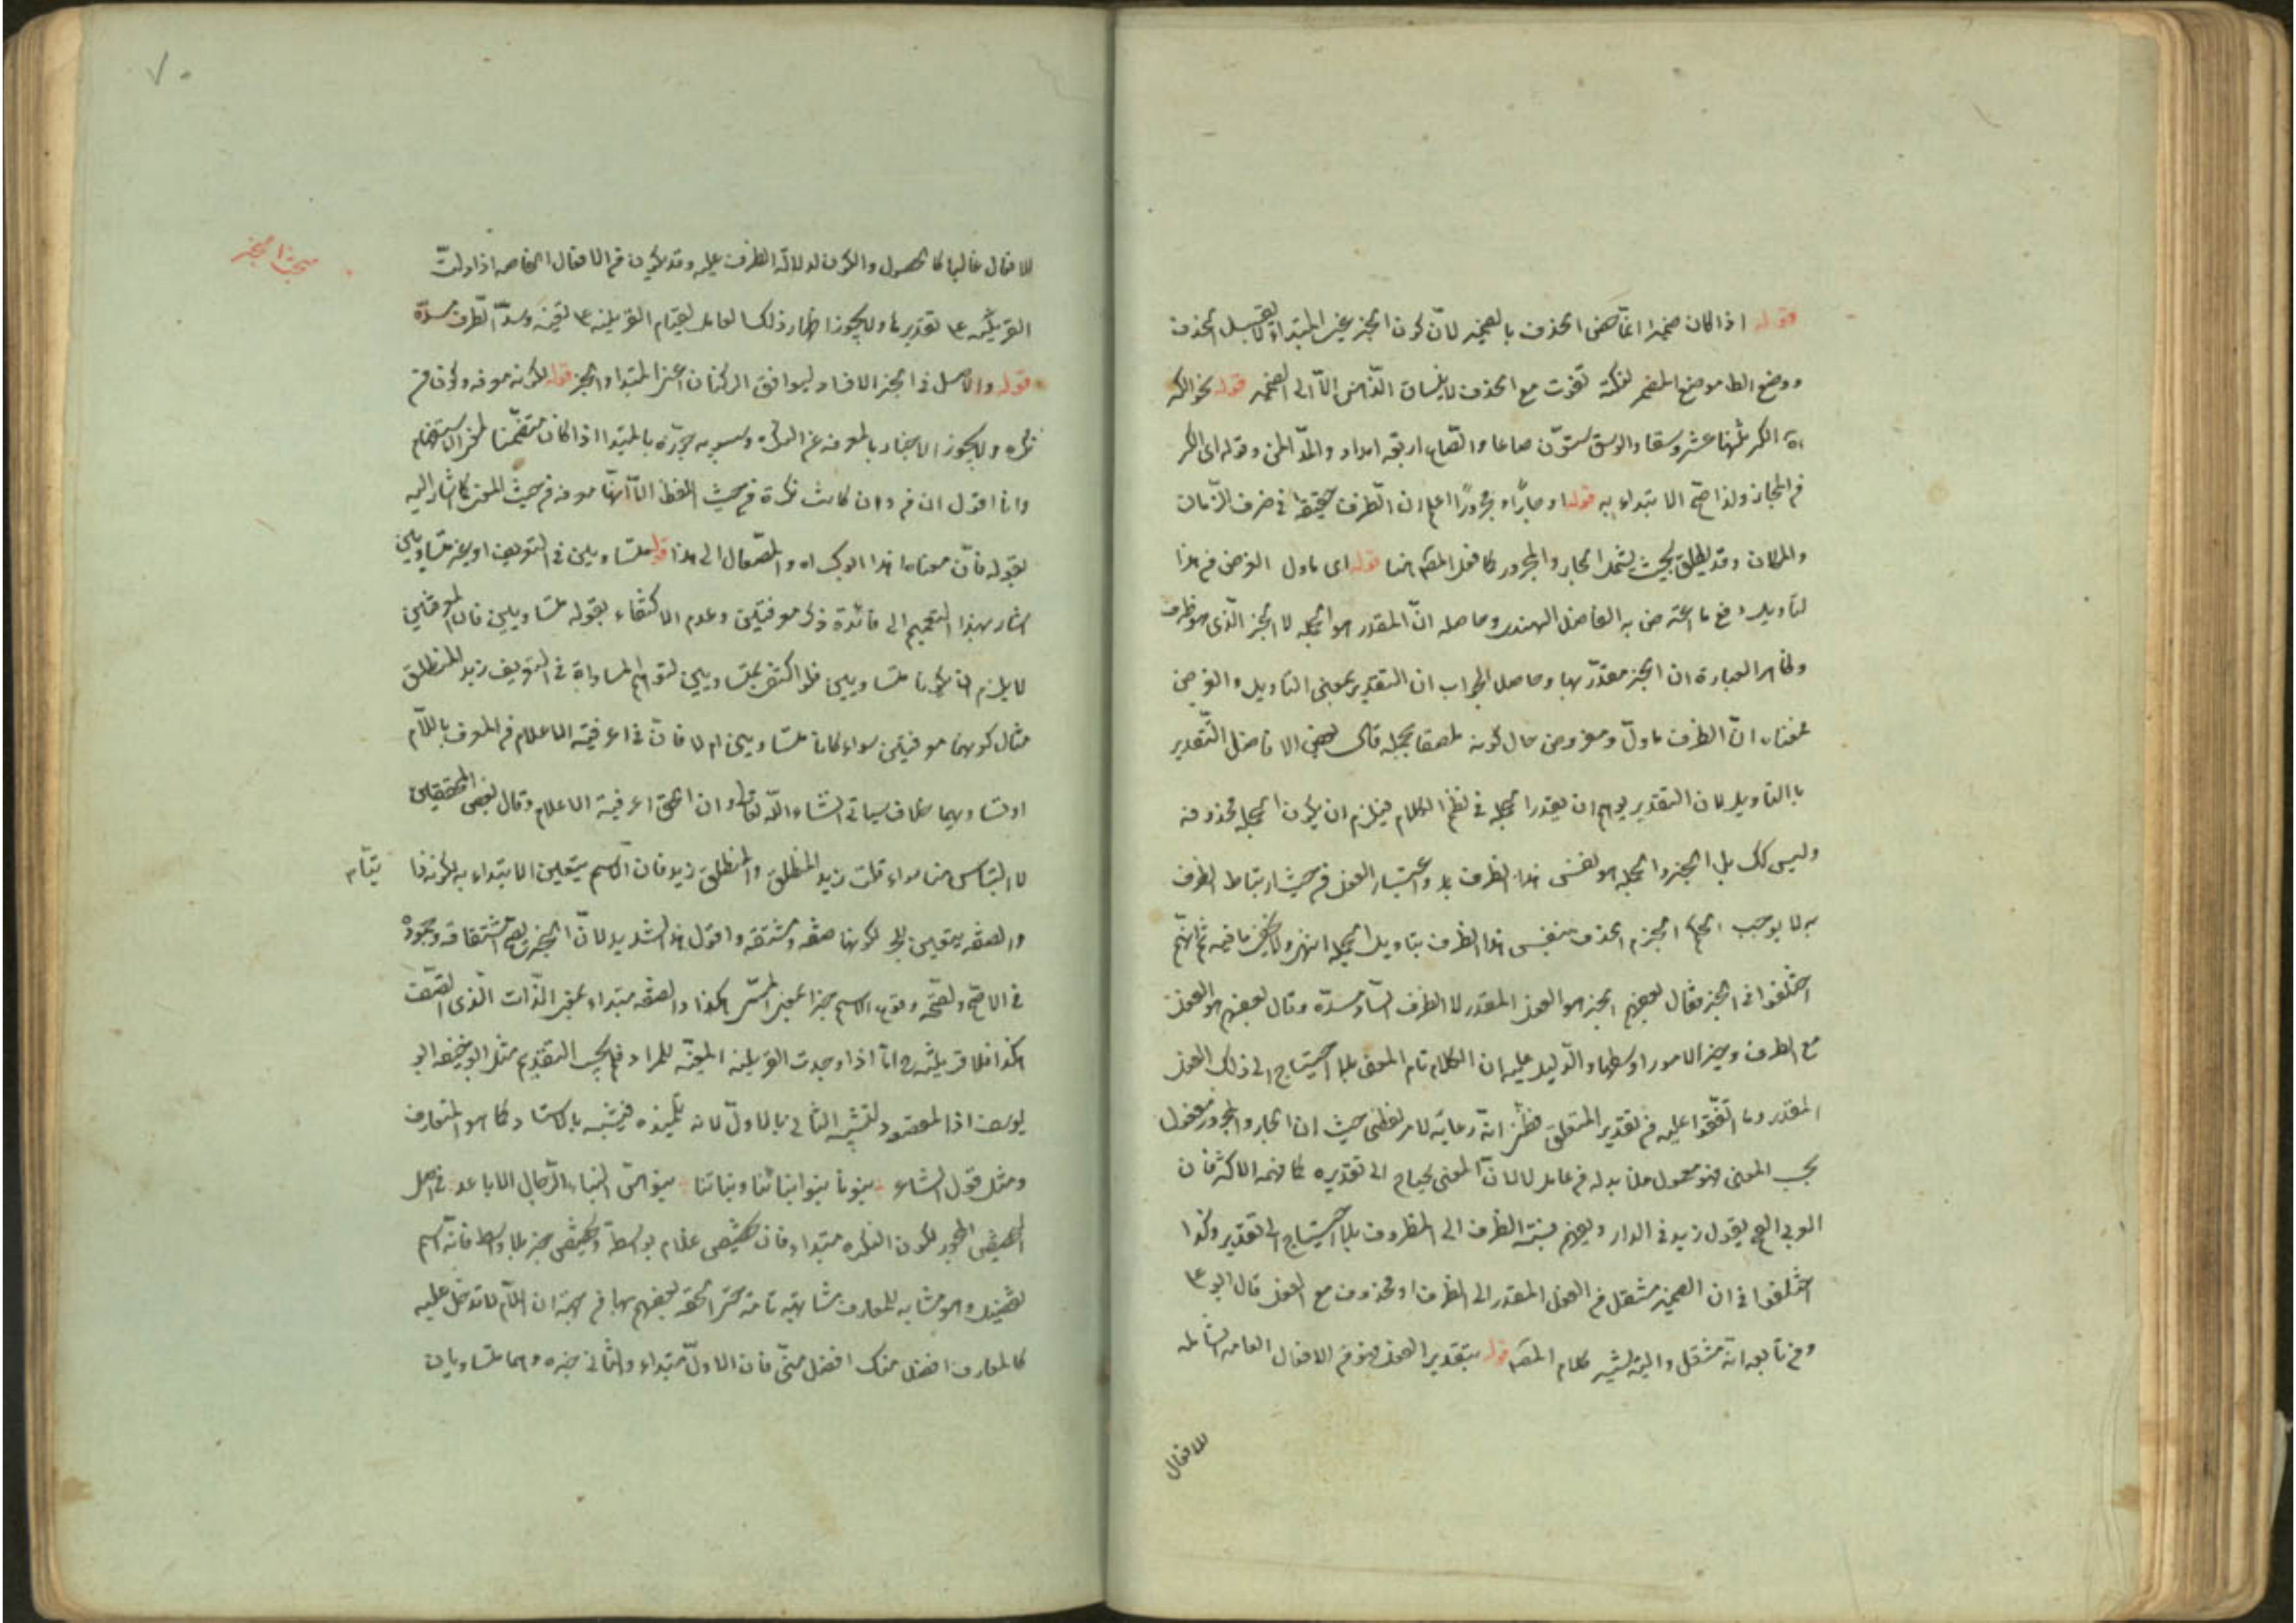 قوله اذا كان ضميرا انما خص الحذف بالضمير لان كون الخبر عين المبتدأ لا يقبل الحذف
ووضع الظ موضع المضمر لنكتة تفوت مع الحذف لا ينساق الذهن الا الى الضمير قوله نحو الكر
اه الكر اثنا عشر وسقا والوسق ستون صاعا والصاع اربعة امداد والمد المن وقوله اى الكر
ولذا صح الابتداء به قوله او جارا او مجرورا اعلم ان الظرف حقيقة فى ظرف الزمان
والمكان وقد يطلق بحيث يشمل الجار والمجرور كما فعل المصه هنا قوله اى ماول الغرض من هذا
التاويل دفع ما اعترض به الفاضل الهندى وحاصله ان المقدر هو الجملة لا الخبر الذى هو ظرف
وظاهر العبارة ان الخبر مقدر بها وحاصل الجواب ان التقدير بمعنى التاويل والغرض
فمعناه ان الظرف ماول ومفروض حال كونه ملصقا بجملة قال بعض الافاضل التقدير
بالتاويل لان التقدير يوهم ان يقدر الجملة فى نظم الكلام فيلزم ان يكون الجملة محذوفة
وليس كك بل الخبر والجملة هو نفس هذا الظرف بل واعتبار الفعل من حيث ارتباط الظرف
به لا يوجب الحذف بنفس هذا الظرف بتاويل الجملة انتهى ولا يخفى ما فيه ثم انهم
اختلفوا فى الخبر فقال بعضهم الخبر هو الفعل المقدر لا الظرف الساد مسده وقال بعضهم هو الفعل
مع الظرف وخير الامور اوسطها والدليل عليه ان الكلام تام المعنى بلا احتياج الى ذلك الفعل
المقدر وما اتفقوا عليه من تقدير المتعلق فظنى انه رعاية لامر لفظى حيث ان الجار والمجرور مفعول
بحسب المعنى فهو معمول فلا بد له من عامل لا لان المعنى يحتاج الى تقديره كما فهمه الاكثر فان
العربى القح يقول زيد فى الدار ويفهم نسبة الظرف الى المظروف بلا احتياج الى تقدير وكذا
اختلفوا فى ان الضمير منتقل من الفعل المقدر الى الظرف او محذوف مع الفعل قال ابو على
ومن تابعه انه منتقل واليه يشير كلام المصه قوله بتقدير الفعل هو من الافعال العامة الشاملة
للافعال
مبحث الخبر
للافعال غالبا كالحصول والكون لدلالة الظرف عليه وقد يكون من الافعال الخاصة اذا دلت
القرينة على تقديرها ولا يجوز اظهار ذلك العامل لقيام القرينة على تعينه وسد الظرف مسده
قوله والاصل فى الخبر الافراد ليوافق الركنان اعنى المبتدا والخبر قوله لكونه معرفة وكون من
نكرة ولا يجوز الاخبار بالمعرفة عن النكرة وسيبويه جوزه بالمبتدا اذا كان متضمنا لمعنى الاستفهام
وانا اقول ان من وان كانت نكرة من حيث اللفظ الا انها معرفة من حيث المعنى كما اشار اليه
بقوله فان معناه اهذا ابوك اه والمصه مال الى هذا قوله متساويين فى التعريف او غير متساويين
اشار بهذا التعميم الى فائدة ذكر معرفتين وعدم الاكتفاء بقوله متساويين فان المعرفتين
لا يلزم ان يكونا متساويين فلو اكتفى بمتساويين لتوهم المساواة فى التعريف زيد المنطلق
مثال كونهما معرفتين سواء كانا متساويين ام لا فان فى اعرفية الاعلام من المعرف باللام
او تساويهما خلاف سياتى انشاء الله تعالى وان الحق اعرفية الاعلام وقال بعض المحققين
لا التباس هنا سواء قلت زيد المنطلق والمنطلق زيد فان الاسم يتعين الابتداء به لكونه ذا
والصفة يتعين لكونها صفة ومشتقة واقول هذا لان الخبر يصح اشتقاقه وجموده
فى الاصح ولصحة وقوع الاسم خبرا بمعنى المسمى بكذا والصفة مبتداء بمعنى الذات الذى اتصف
بكذا فلا قرينة ح اما اذا وجدت القرينة المعينة للمراد فلم يجب التقديم مثل ابو حنيفة ابو
يوسف اذ المقصود تشبيه الثانى بالاول لانه تلميذه فيشبه بالاستاد كما هو المتعارف
ومثل قول الشاعر بنونا بنوا ابنائنا وبناتنا بنوهن ابناء الرجال الاباعد
لكون النكرة مبتداء فان غلام بواسطة خبر بلا واسطة فانه اسم
تفضيل وهو مشابه للمعارف مشابهة تامة حتى الحقه بعضهم بها من جهة ان اللام لا تدخل عليه
كالمعارف افضل منك افضل منى فان الاول مبتداء والثانى خبره وهما متساويان
٧٠